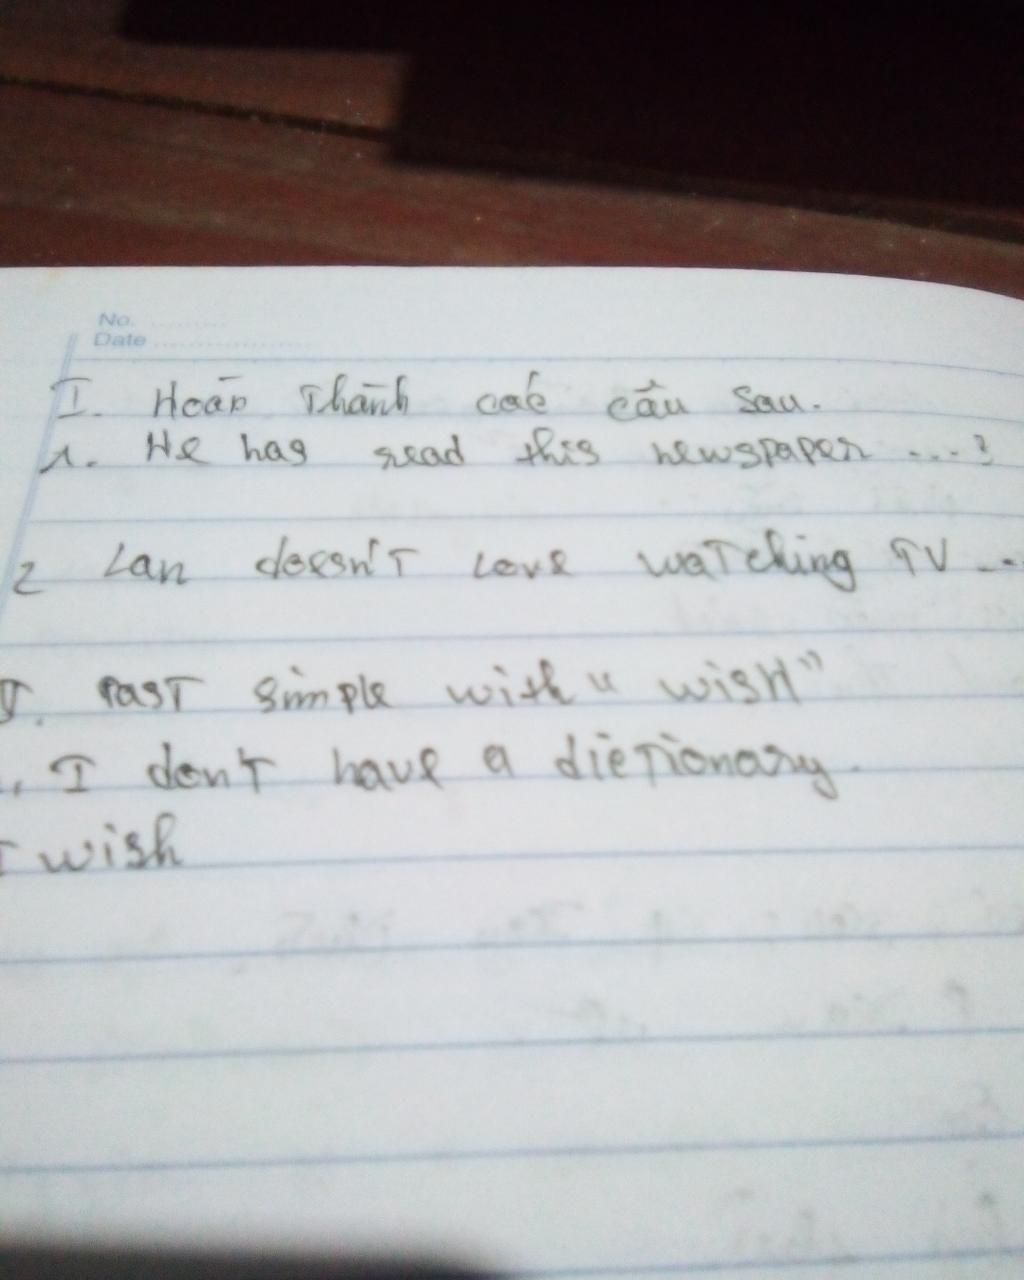 No. ..........
Date ....................
I. Hoàn Thành các câu sau.
1. He has read this newspaper ....?
2 Lan doesn't Love waTching TV ...
II. PasT simple with "wisH"
1, I don't have a dicTionary.
I wish